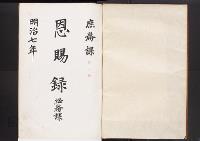 庶務課
恩賜録
庶務課
明治七年